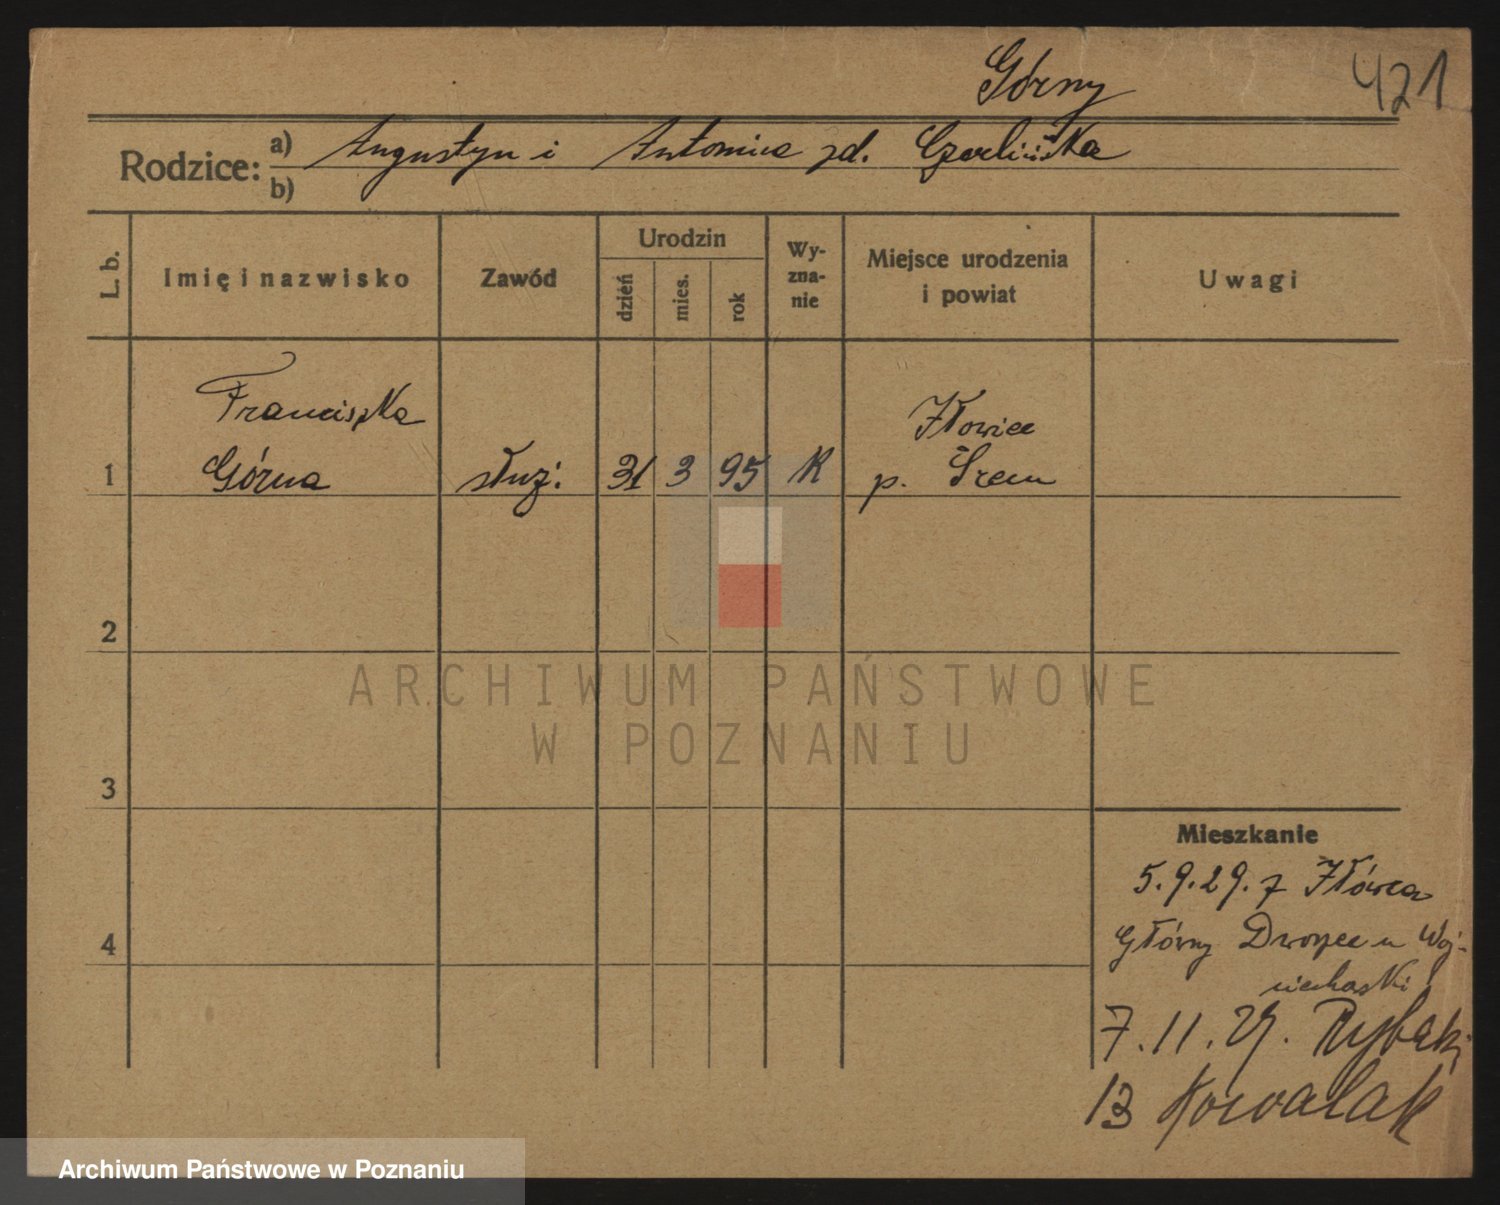 Górny
421
Rodzice: a) Augustyn i Antonina zd. Czerlińska
b)
L. b.
Imię i nazwisko
Zawód
Urodzin
dzień
mies.
rok
Wy-
zna-
nie
Miejsce urodzenia
i powiat
Uwagi
Franciszka
Iłowiec
1 Górna służ: 31 3 95 K p. Śrem
2
ARCHIWUM PAŃSTWOWE
W POZNANIU
3
Mieszkanie
5.9.29. z Iłówca
4
Główny Dworzec u Woj-
ciechowski
7.11.29. Rybaki
13 Kowalak
Archiwum Państwowe w Poznaniu